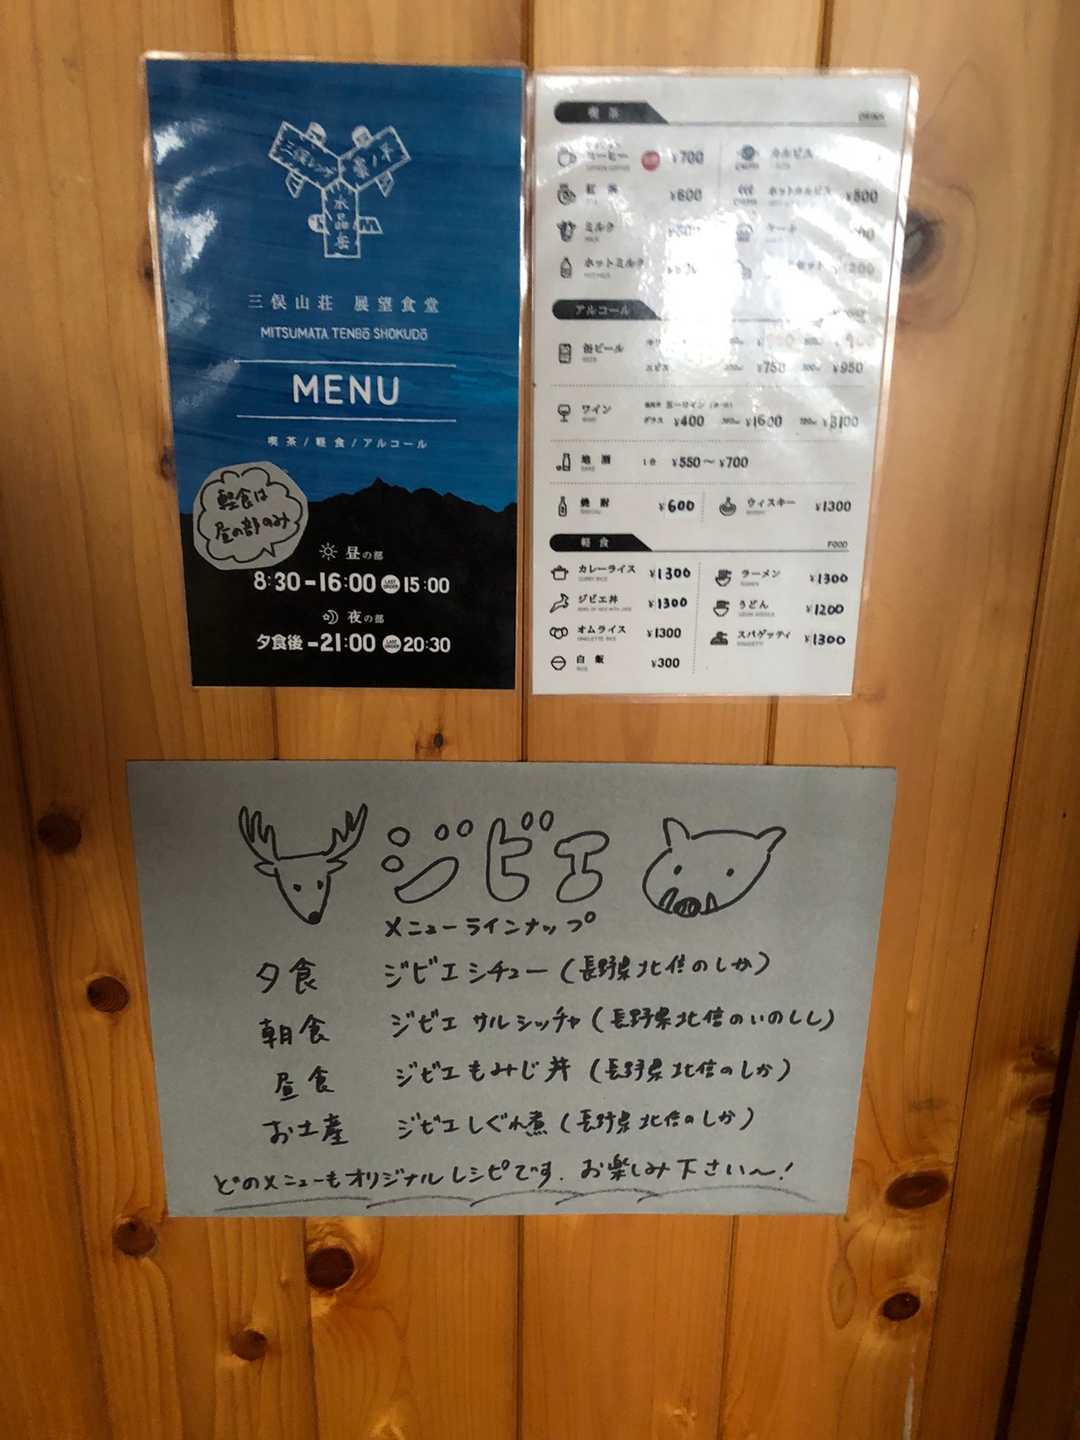 三俣山荘 展望食堂
MITSUMATA TENBŌ SHOKUDŌ
MENU
喫茶/軽食/アルコール
軽食は
昼の部のみ
昼の部
8:30-16:00 LAST ORDER 15:00
夜の部
夕食後-21:00 LAST ORDER 20:30
喫茶
コーヒー ¥700
紅茶 ¥600
ミルク
ホットミルク
カルピス
ホットカルピス ¥800
アルコール
缶ビール
¥750 ¥950
ワイン
グラス ¥400 ¥1600 ¥3100
地酒 1合 ¥550～¥700
焼酎 ¥600
ウィスキー ¥1300
軽食 FOOD
カレーライス ¥1300
ジビエ丼 ¥1300
オムライス ¥1300
白飯 ¥300
ラーメン ¥1300
うどん ¥1200
スパゲッティ ¥1300
ジビエ
メニューラインナップ
夕食 ジビエシチュー(長野県北信のしか)
朝食 ジビエサルシッチャ(長野県北信のいのしし)
昼食 ジビエもみじ丼(長野県北信のしか)
お土産 ジビエしぐれ煮(長野県北信のしか)
どのメニューもオリジナルレシピです．お楽しみ下さい～!